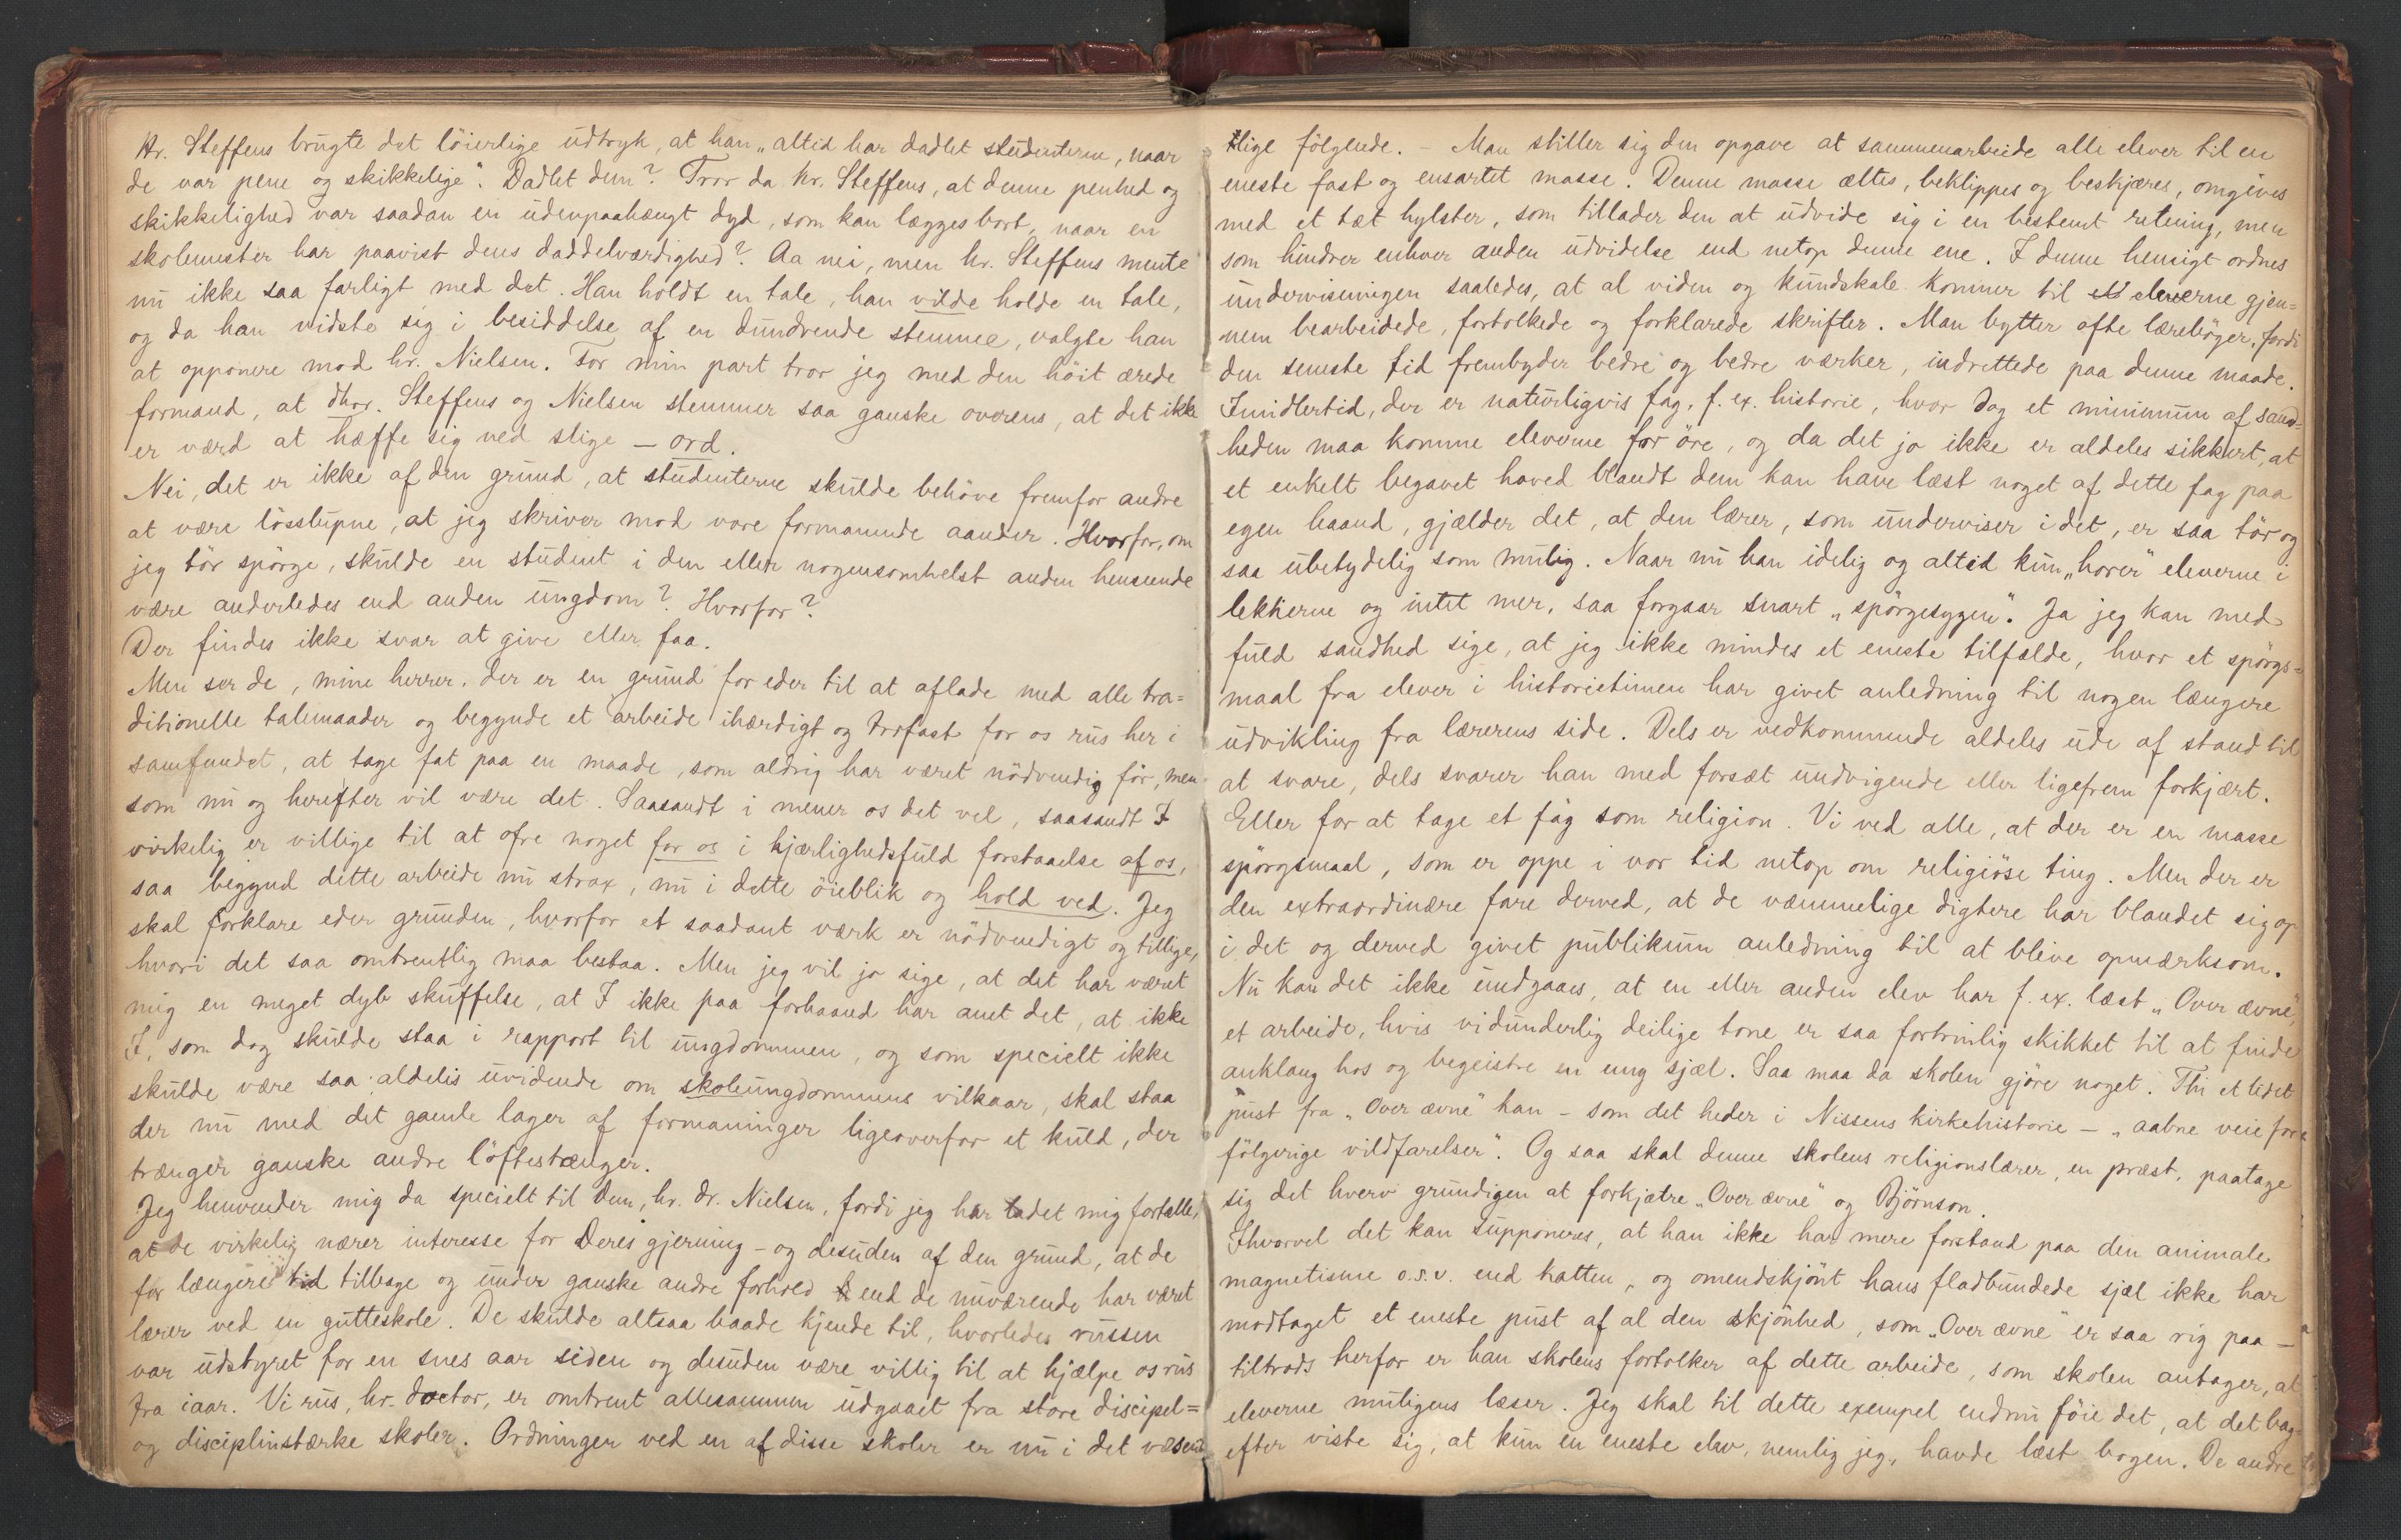 Hr. Steffens brugte det löierlige udtryk, at han „altid har dadlet studenterne, naar
de var pene og skikkelige“. Dadlet dem? Tror da hr. Steffens, at denne penhed og
skikkelighed var saadan en udenpaahængt dyd, som kan lægges bort, naar en
skolemester har paavist dens daddelværdighed? Aa nei, men hr. Steffens mente
nu ikke saa farligt med det. Han holdt en tale, han vilde holde en tale,
og da han vidste sig i besiddelse af en dundrende stemme, valgte han
at opponere mod hr. Nielsen. For min part tror jeg med den höit ærede
formand, at dhrr. Steffens og Nielsen stemmer saa ganske overens, at det ikke
er værd at hæffe sig ved slige – ord.
Nei, det er ikke af den grund, at studenterne skulde behöve fremfor andre
at være lösslupne, at jeg skriver mod vore formanende aander. Hvorfor, om
jeg tör spörge, skulde en student i den eller nogensomhelst anden henseende
være anderledes end anden ungdom? Hvorfor?
Der findes ikke svar at give eller faa.
Men ser de, mine herrer, der er en grund for eder til at aflade med alle tra=
ditionelle talemaader og begynde et arbeide ihærdigt og trofast for os rus her i
samfundet, at tage fat paa en maade, som aldrig har været nödvendig för, men
som nu og herefter vil være det. Saasandt i mener os det vel, saasandt I
virkelig er villige til at ofre noget for os i kjærlighedsfuld forstaaelse af os,
saa begynd dette arbeide nu strax, nu i dette öieblik og hold ved. Jeg
skal forklare eder grunden, hvorfor et saadant værk er nödvendigt og tillige,
hvori det saa omtrentlig maa bestaa. Men jeg vil jo sige, at det har været
mig en meget dyb skuffelse, at I ikke paa forhaand har anet det, at ikke
I, som dog skulde staa i rapport til ungdommen, og som specielt ikke
skulde være saa aldeles uvidende om skoleungdommens vilkaar, skal staa
der nu med det gamle lager af formaninger ligeoverfor et kuld, der
trænger ganske andre löftestænger.
Jeg henvender mig da specielt til Dem, hr. dr. Nielsen, fordi jeg har ladet mig fortælle,
at de virkelig nærer interesse for Deres gjerning – og desuden af den grund, at de
for længere tid tilbage og under ganske andre forhold end de nuværende har været
lærer ved en gutteskole. De skulde altsaa baade kjende til, hvorledes russen
var udstyret for en snes aar siden og desuden være villig til at hjælpe os rus
fra iaar. Vi rus, hr. doctor, er omtrent allesammen udgaaet fra store discipel=
og disciplinstærke skoler. Ordningen ved en af disse skoler er nu i det væsent
lige fölgende. – Man stiller sig den opgave at sammenarbeide alle elever til en
eneste fast og ensartet masse. Denne masse æltes, beklippes og beskjæres, omgives
med et tæt hylster, som tillader den at udvide sig i en bestemt retning, men
som hindrer enhver anden udvidelse end netop denne ene. I denne hensigt ordnes
undervisningen saaledes, at al viden og kundskab kommer til eleverne gjen=
nem bearbeidede, fortolkede og forklarede skrifter. Man bytter ofte lærebøger, fordi
den seneste tid frembyder bedre og bedre værker, indrettede paa denne maade.
Imidlertid, der er naturligvis fag, f. ex. historie, hvor dog et minimum af sand=
heden maa komme eleverne for öre, og da det jo ikke er aldeles sikkert, at
et enkelt begavet hoved blandt dem kan have læst noget af dette fag paa
egen haand, gjælder det, at den lærer, som underviser i det, er saa tör og
saa ubetydelig som mulig. Naar nu han idelig og altid kun „hörer“ eleverne i
lektierne og intet mer, saa forgaar snart „spörgesygen“. Ja jeg kan med
fuld sandhed sige, at jeg ikke mindes et eneste tilfælde, hvor et spörgs=
maal fra elever i historietimen har givet anledning til nogen længere
udvikling fra lærerens side. Dels er vedkommende aldeles ude af stand til
at svare, dels svarer han med forsæt undvigende eller ligefrem forkjært.
Eller for at tage et fag som religion. Vi ved alle, at der er en masse
spörgsmaal, som er oppe i vor tid netop om religiöse ting. Men der er
den extraordinære fare derved, at de væmmelige digtere har blandet sig op
i det og derved givet publikum anledning til at blive opmærksom.
Nu kan det ikke undgaaes, at en eller anden elev har f. ex. læst „Over ævne“,
et arbeide, hvis vidunderlig deilige tone er saa fortrinlig skikket til at finde
anklang hos og begeistre en ung sjæl. Saa maa da skolen gjöre noget. Thi et lidet
pust fra „Over ævne“ kan – som det heder i Nissens kirkehistorie – „aabne veie for
fölgerige vildfarelser“. Og saa skal denne skolens religionslærer, en præst, paatage
sig det hverv grundigen at forkjætre „Over ævne“ og Björnson.
Ihvorvel det kan supponeres, at han ikke har mere forstand paa den animale
magnetisme o.s.v. end katten, og omendskjönt hans fladbundede sjæl ikke har
modtaget et eneste pust af al den skjönhed, som „Over ævne“ er saa rig paa –
tiltrods herfor er han skolens fortolker af dette arbeide, som skolen antager, at
eleverne muligens læser. Jeg skal til dette exempel endnu föie det, at det bag=
efter viste sig, at kun en eneste elev, nemlig jeg, havde læst bogen. De andre